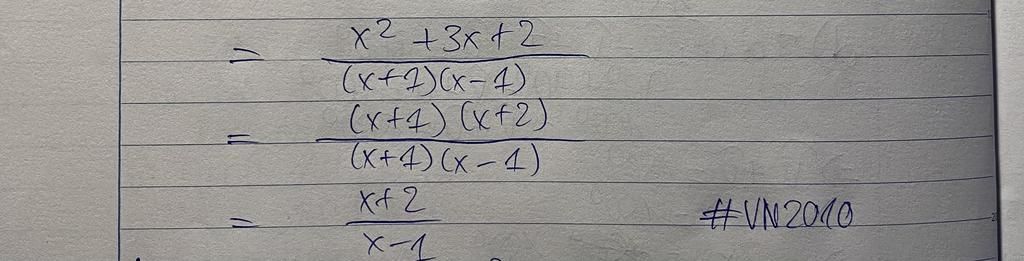 = x² + 3x + 2
(x+1)(x-1)
= (x+1)(x+2)
(x+1)(x-1)
= x+2
x-1
#VN2010